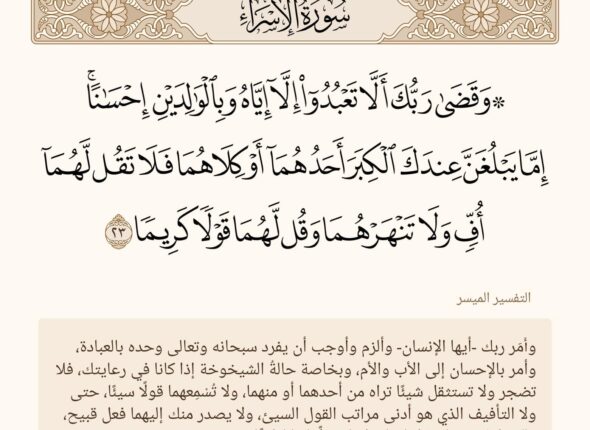 سُورَةُ الإِسۡرَاءِ
۞ وَقَضَىٰ رَبُّكَ أَلَّا تَعۡبُدُوٓاْ إِلَّآ إِيَّاهُ وَبِٱلۡوَٰلِدَيۡنِ إِحۡسَٰنًاۚ
إِمَّا يَبۡلُغَنَّ عِندَكَ ٱلۡكِبَرَ أَحَدُهُمَآ أَوۡ كِلَاهُمَا فَلَا تَقُل لَّهُمَآ
أُفّٖ وَلَا تَنۡهَرۡهُمَا وَقُل لَّهُمَا قَوۡلٗا كَرِيمٗا ٢٣
التفسير الميسر
وأمَر ربك -أيها الإنسان- وألزم وأوجب أن يفرد سبحانه وتعالى وحده بالعبادة،
وأمر بالإحسان إلى الأب والأم، وبخاصة حالةُ الشيخوخة إذا كانا في رعايتك، فلا
تضجر ولا تستثقل شيئًا تراه من أحدهما أو منهما، ولا تُسْمِعهما قولًا سيئًا، حتى
ولا التأفيف الذي هو أدنى مراتب القول السيئ، ولا يصدر منك إليهما فعل قبيح،